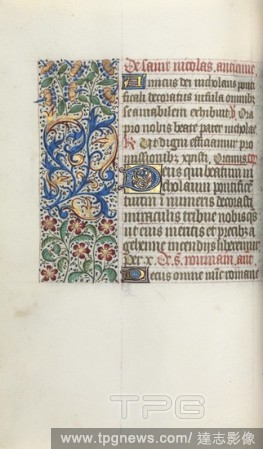 De saint nicolas, antienne
Amicus dei nicholaus ponti
ficali decoratus infula omnibz
se amabilem exhibuit. V. Ora
pro nobis beate pater nicholae.
R. Ut digni efficiamur pro
missionibz xpisti. Oremus.
Deus qui beatum ni
cholaum pontifice
tuum innumeris decorasti
miraculis tribue nobis qs
ut eius meritis et precibz a
gehenne incendijs liberemur.
per x. De s. rommain, ane.
Decus omne
TPG
www.tpgnews.com/ 達志影像